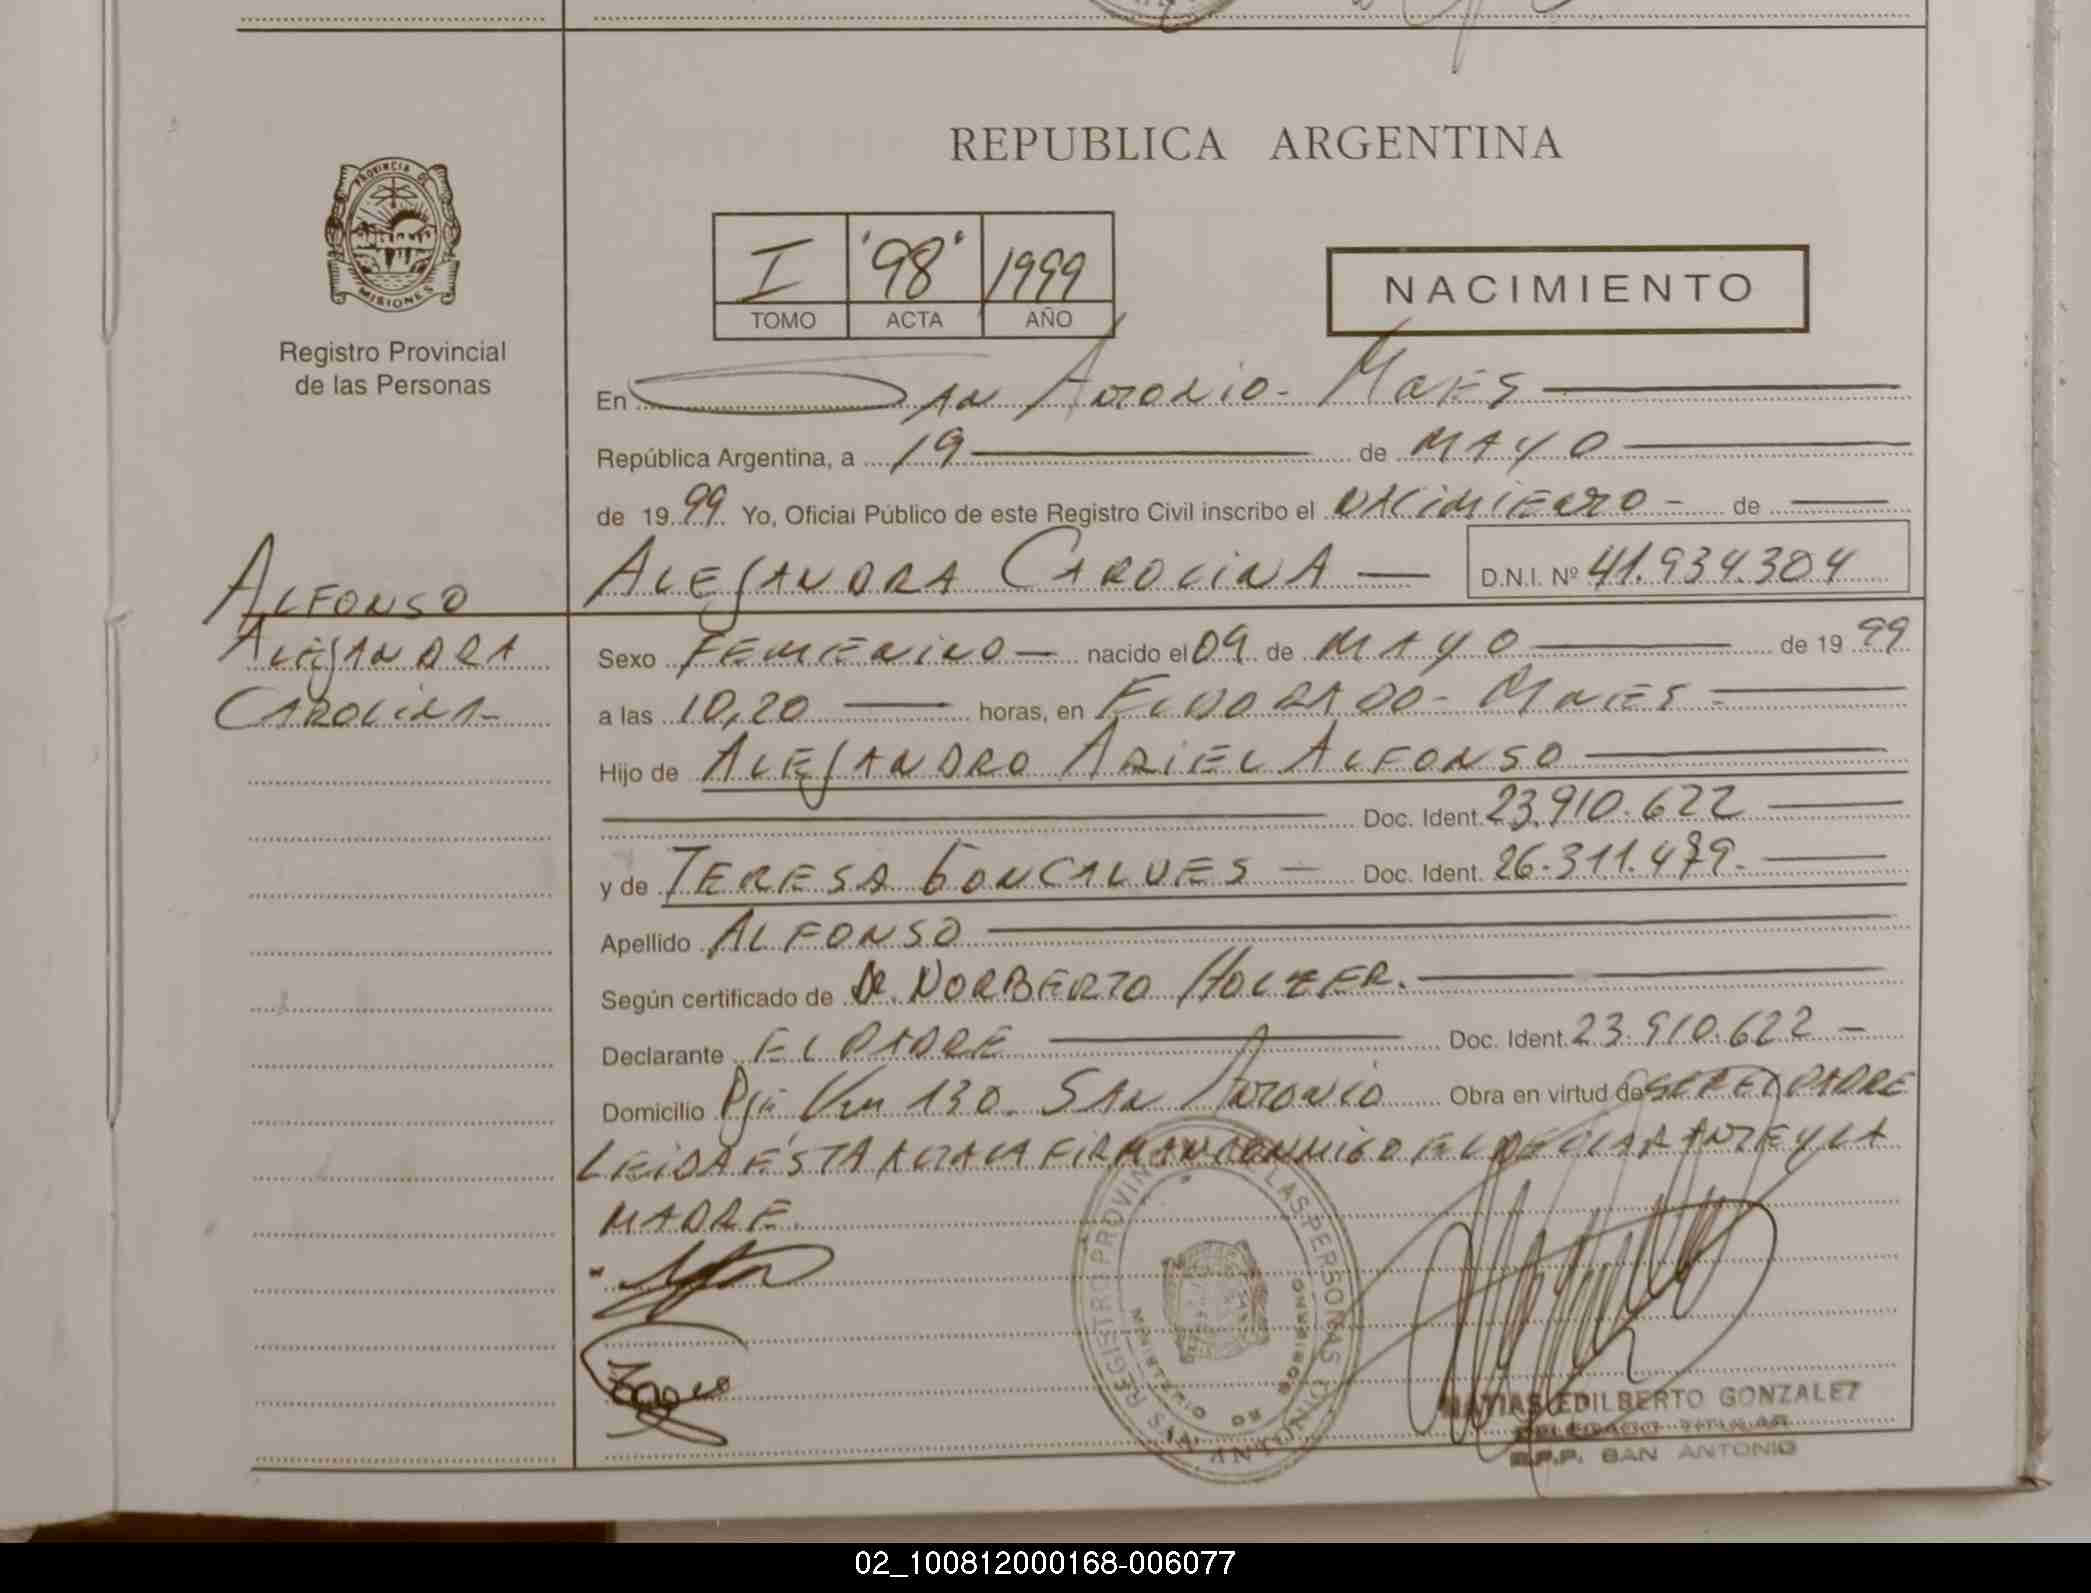 REPUBLICA ARGENTINA
PROVINCIA DE
MISIONES
Registro Provincial
de las Personas
I "98" 1999
TOMO ACTA AÑO
NACIMIENTO
En San Antonio - Mnes
República Argentina, a 19 de MAYO
de 1999 Yo, Oficial Público de este Registro Civil inscribo el NACIMIENTO - de
ALEJANDRA CAROLINA — D.N.I. Nº 41.934.304
ALFONSO
ALEJANDRA
CAROLINA
Sexo FEMENINO — nacido el 09 de MAYO de 1999
a las 10,20 horas, en ELDORADO - MNES
Hijo de ALEJANDRO ARIEL ALFONSO
Doc. Ident. 23.910.622
y de TERESA GONCALVES — Doc. Ident. 26.311.479.
Apellido ALFONSO
Según certificado de DR. NORBERTO HOLZER.
Declarante EL PADRE Doc. Ident. 23.910.622 —
Domicilio Pje Km 130. SAN ANTONIO Obra en virtud de SER EL PADRE
LEIDA ÉSTA ACTA LA FIRMAN CONMIGO EL DECLARANTE Y LA
MADRE.
REGISTRO PROVINCIAL LAS PERSONAS
MINISTERIO DE GOBIERNO
MATIAS EDILBERTO GONZALEZ
DELEGADO TITULAR
R.P.P. SAN ANTONIO
02_100812000168-006077